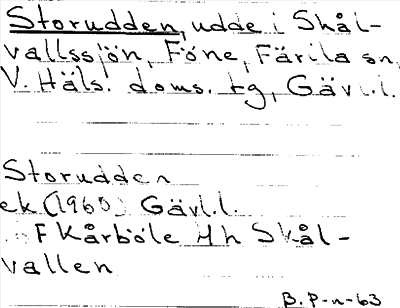 Storudden, udde i Skål-
vallssjön, Föne, Färila sn,
V. Häls. doms. tg, Gävl.l.
Storudden
ek (1960) Gävl.l.
F Kårböle Hh Skål-
vallen
B. P-n-63